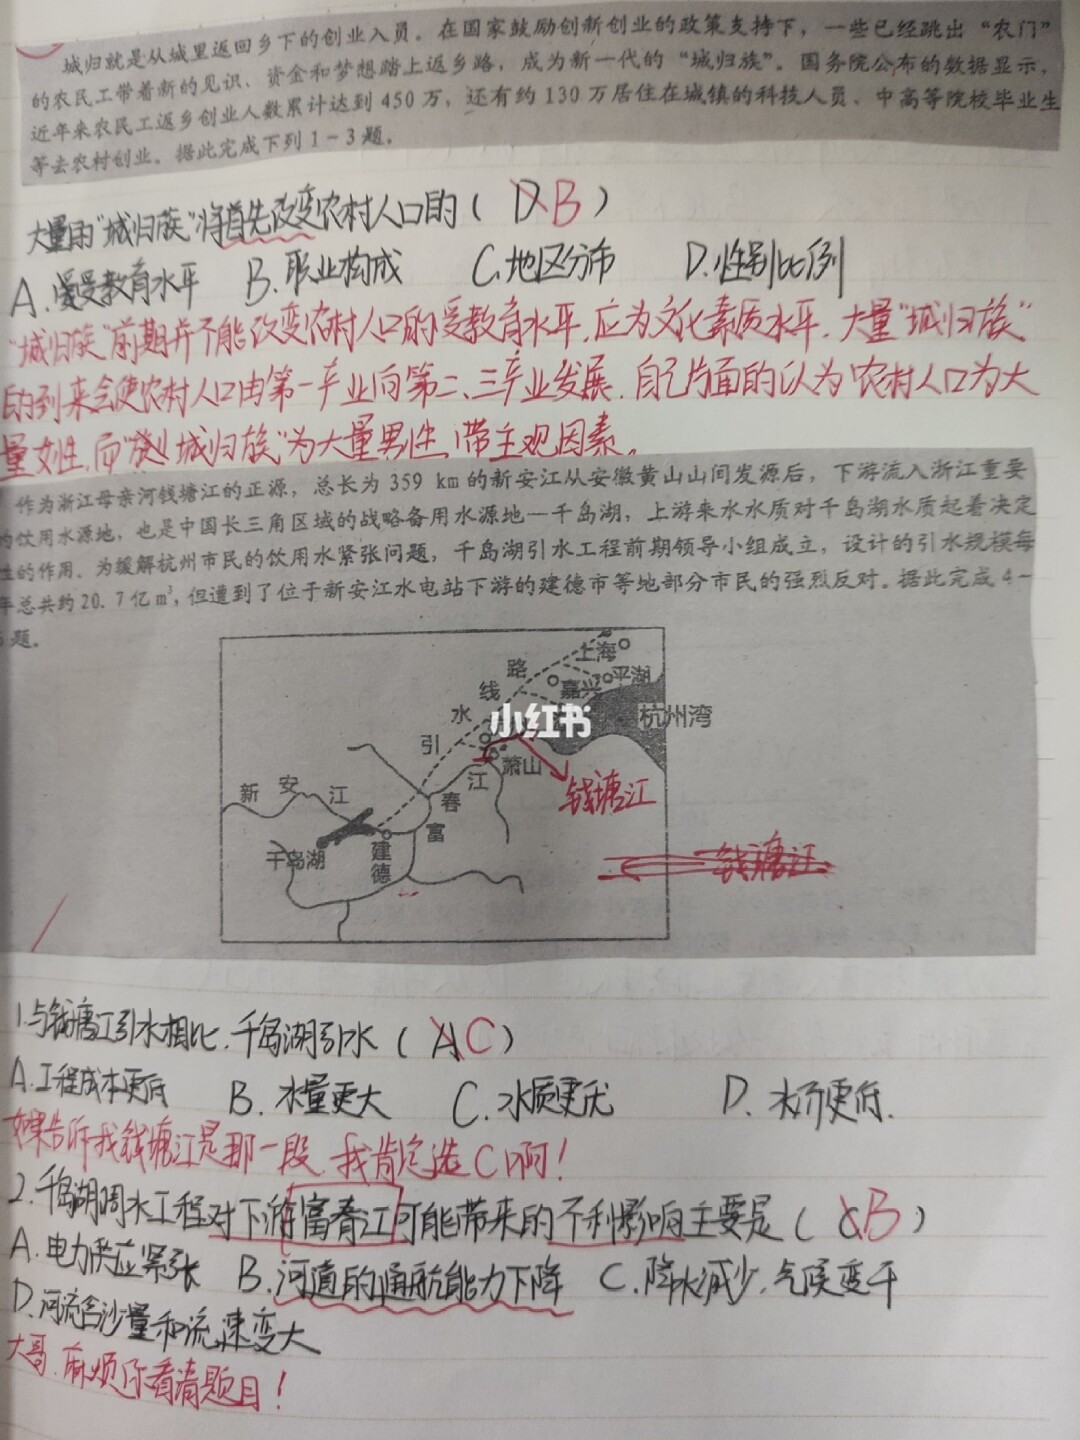 城归就是从城里返回乡下的创业人员。在国家鼓励创新创业的政策支持下，一些已经跳出“农门”
的农民工带着新的见识、资金和梦想踏上返乡路，成为新一代的“城归族”。国务院公布的数据显示，
近年来农民工返乡创业人数累计达到450万，还有约130万居住在城镇的科技人员、中高等院校毕业生
等去农村创业。据此完成下列1～3题。
大量的“城归族”将首先改变农村人口的（DB）
A.受教育水平 B.职业构成 C.地区分布 D.性别比例
“城归族”前期并不能改变农村人口的受教育水平,应为文化素质水平.大量“城归族”
的到来会使农村人口由第一产业向第二、三产业发展.自己片面的认为农村人口为大
量女性,而“城归族”为大量男性,带主观因素。
作为浙江母亲河钱塘江的正源，总长为359 km的新安江从安徽黄山山间发源后，下游流入浙江重要
的饮用水源地，也是中国长三角区域的战略备用水源地—千岛湖，上游来水水质对千岛湖水质起着决定
性的作用。为缓解杭州市民的饮用水紧张问题，千岛湖引水工程前期领导小组成立，设计的引水规模每
年总共约20.7亿m³,但遭到了位于新安江水电站下游的建德市等地部分市民的强烈反对。据此完成4～
题。
上海
路
平湖
嘉兴
线
杭州湾
水
小红书
引
萧山
江
钱塘江
新安江
春
富
千岛湖
建德
钱塘江
1.与钱塘江引水相比.千岛湖引水（AC）
A.工程成本更低 B.水量更大 C.水质更优 D.水价更低.
如果告诉我钱塘江是那一段,我肯定选C啊!
2.千岛湖调水工程对下游富春江可能带来的不利影响主要是（B）
A.电力供应紧张 B.河道的通航能力下降 C.降水减少.气候变干
D.河流含沙量和流速变大
大哥.麻烦你看清题目!